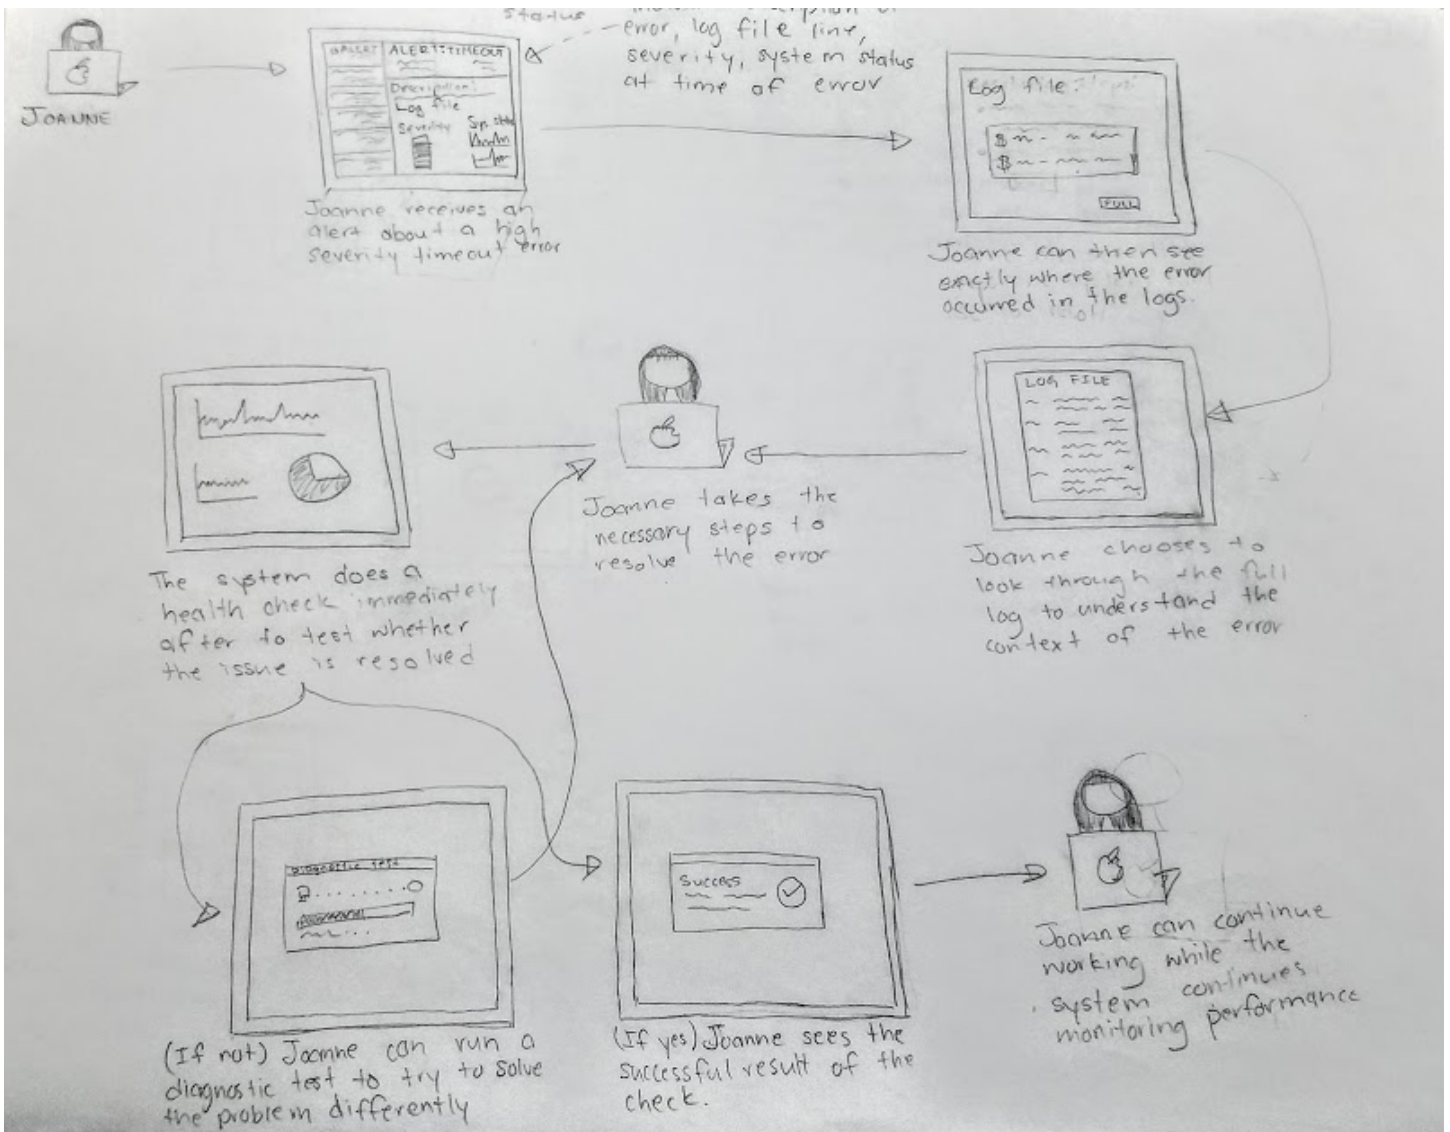 status
error, log file line,
severity, system status
at time of error
JOANNE
ALERT: TIMEOUT
Description:
Log file
Severity
Joanne receives an
alert about a high
severity timeout error
Log file:
FULL
Joanne can then see
exactly where the error
occurred in the logs.
LOG FILE
Joanne chooses to
look through the full
log to understand the
context of the error
Joanne takes the
necessary steps to
resolve the error
The system does a
health check immediately
after to test whether
the issue is resolved
Diagnostic test
(If not) Joanne can run a
diagnostic test to try to solve
the problem differently
Success
(If yes) Joanne sees the
successful result of the
check.
Joanne can continue
working while the
system continues
monitoring performance